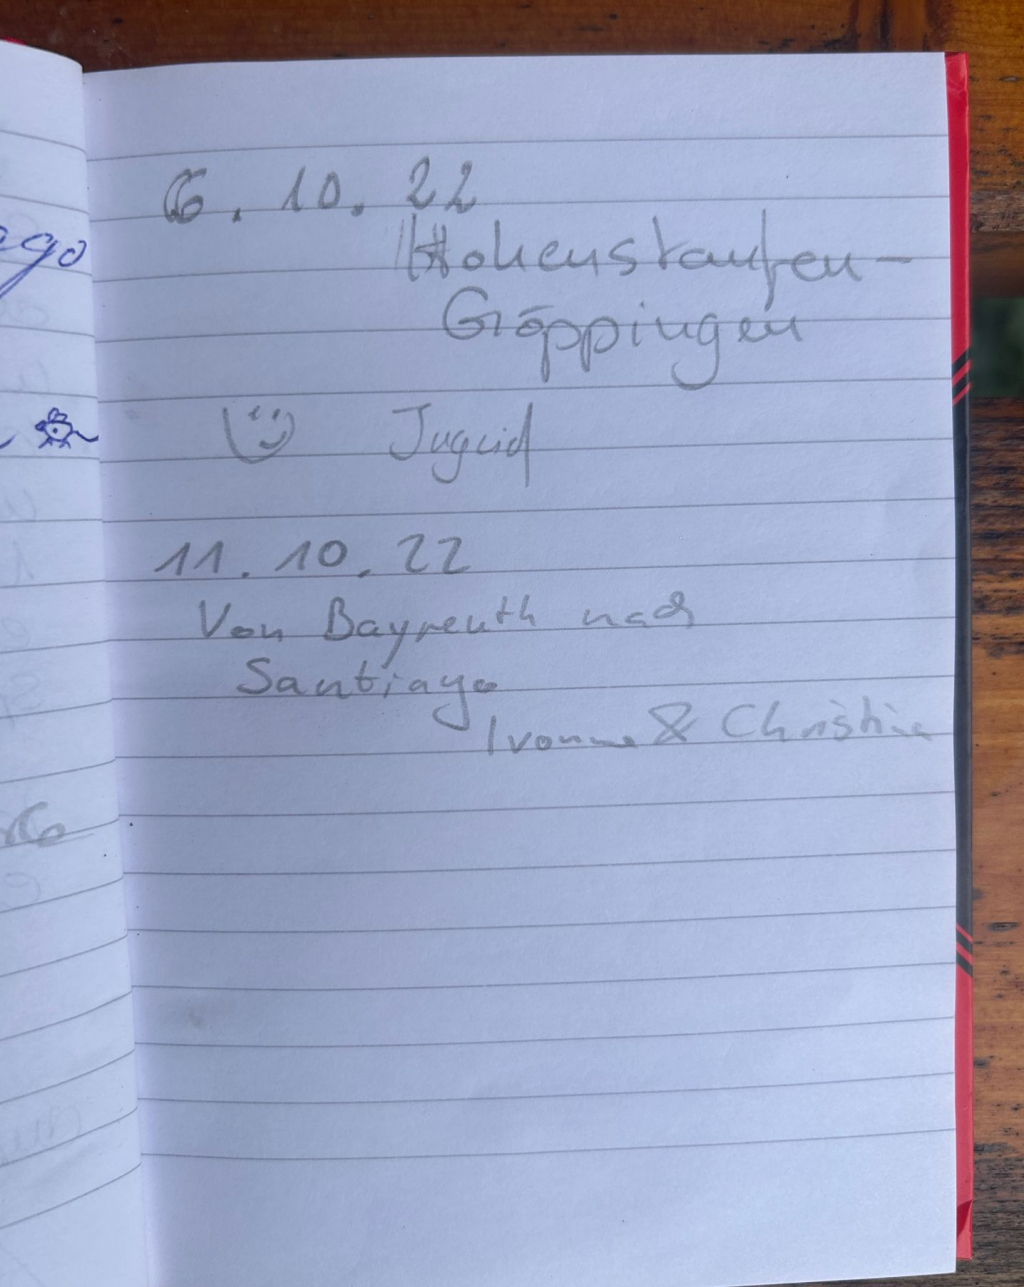 ago
6.10.22
Hohenstaufen-
Göppingen
11.10.22
Von Bayreuth nach
Santiago
Ivonne & Christine